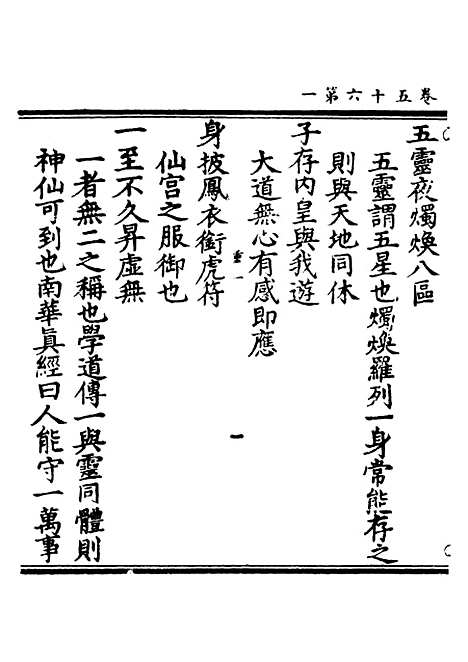 卷五十六第一
五靈夜燭煥八區
五靈謂五星也燭煥羅列一身常能存之
則與天地同休
子存内皇與我遊
大道無心有感即應
身披鳳衣銜虎符
仙宮之服御也
一至不久昇虛無
一者無二之稱也學道傳一與靈同體則
神仙可到也南華眞經曰人能守一萬事
一